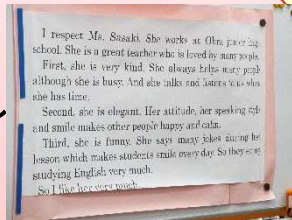 I respect Ms. Sasaki. She works at Ohra junior hig
school. She is a great teacher who is loved by many people.
First, she is very kind. She always helps many peopl
although she is busy. And she talks and listens to us when
she has time.
Second, she is elegant. Her attitude, her speaking style
and smile makes other people happy and calm.
Third, she is funny. She says many jokes during her
lesson which makes students smile every day. So they enjoy
studying English very much.
So I like her very much.